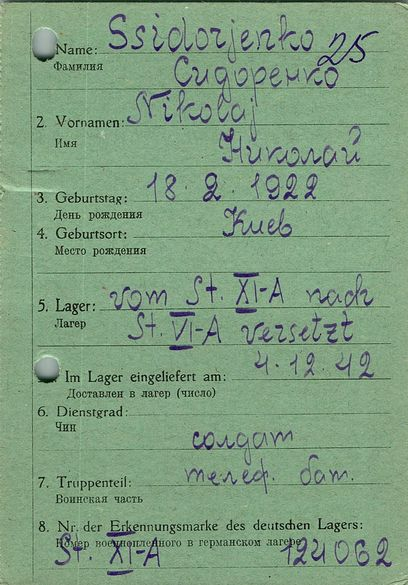 Name: Ssidorjenko 25
Фамилия Сидоренко
2. Vornamen: Nikolaj
Имя Николай
3. Geburtstag: 18.2.1922
День рождения
4. Geburtsort: Киев
Место рождения
5. Lager: vom St. XI-A nach
Лагер St. VI-A versetzt
Im Lager eingeliefert am: 4.12.42
Доставлен в лагер (число)
6. Dienstgrad:
Чин солдат
7. Truppenteil: телеф. бат.
Воинская часть
8. Nr. der Erkennungsmarke des deutschen Lagers:
Номер военнопленного в германском лагере
St. XI-A 124062